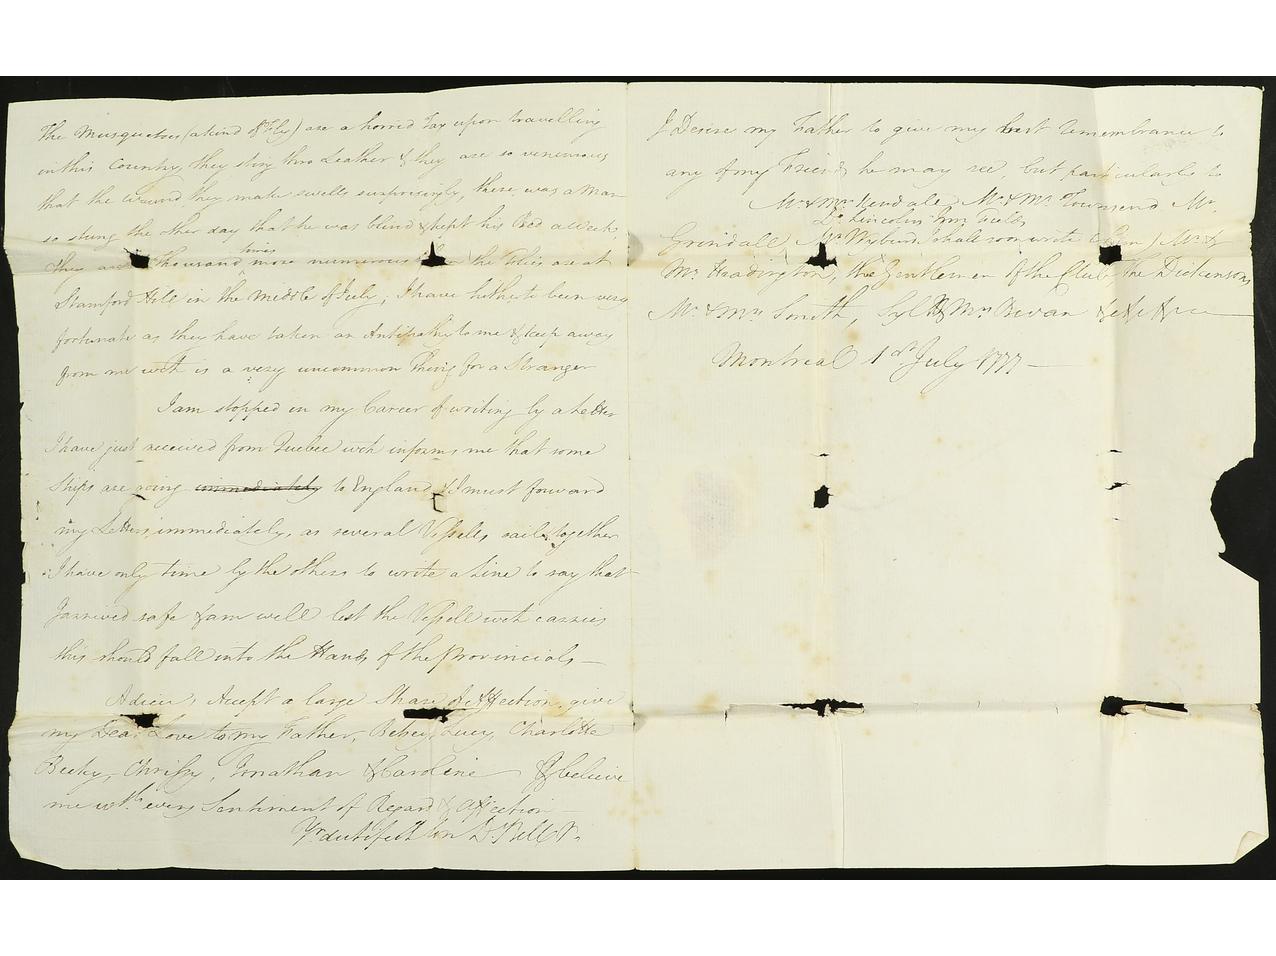 The Musquetoes (a kind of Fly) are a horrid Tax upon travelling
in this Country, they sting thro Leather & they are so venemous
that the wound they make swells surprisingly, there was a Man
so stung the other day that he was blind & kept his Bed a Week,
they are thousand times more numerous than the Flies are at
Stamford Hill in the middle of July; I have hitherto been very
fortunate as they have taken an Antipathy to me & keep away
from me wch is a very uncommon Thing for a Stranger
I am stopped in my Career of writing by a Letter
I have just received from Quebec wch informs me that some
Ships are going immediately to England & I must forward
my Letters immediately, as several Vessells sail together
I have only time by the others to write a Line to say that
I arrived safe & am well lest the Vessell wch carries
this should fall into the Hands of the Provincials—
Adieu, Accept a large Share of Affection, give
my Dear Love to my Father, Betsey, Lucy, Charlotte
Becky, Chrissy, Jonathan & Caroline & believe
me wth every Sentiment of Regard & Affection
Yr dutifull Son
I Desire my Father to give my best remembrance to
any of my Friends he may see, but particularly to
Mr & Mrs Kendale, Mr & Mrs Townsend Mr
Dr Lincoln
Grindall, Mr Wyburd (I shall son write to him) Mr &
Mrs Hadington, the Gentlemen of the Club, the Dickensons
Mr & Mrs Smith, & Mrs Bevan &c &c &c
Montreal 1st July 1777—